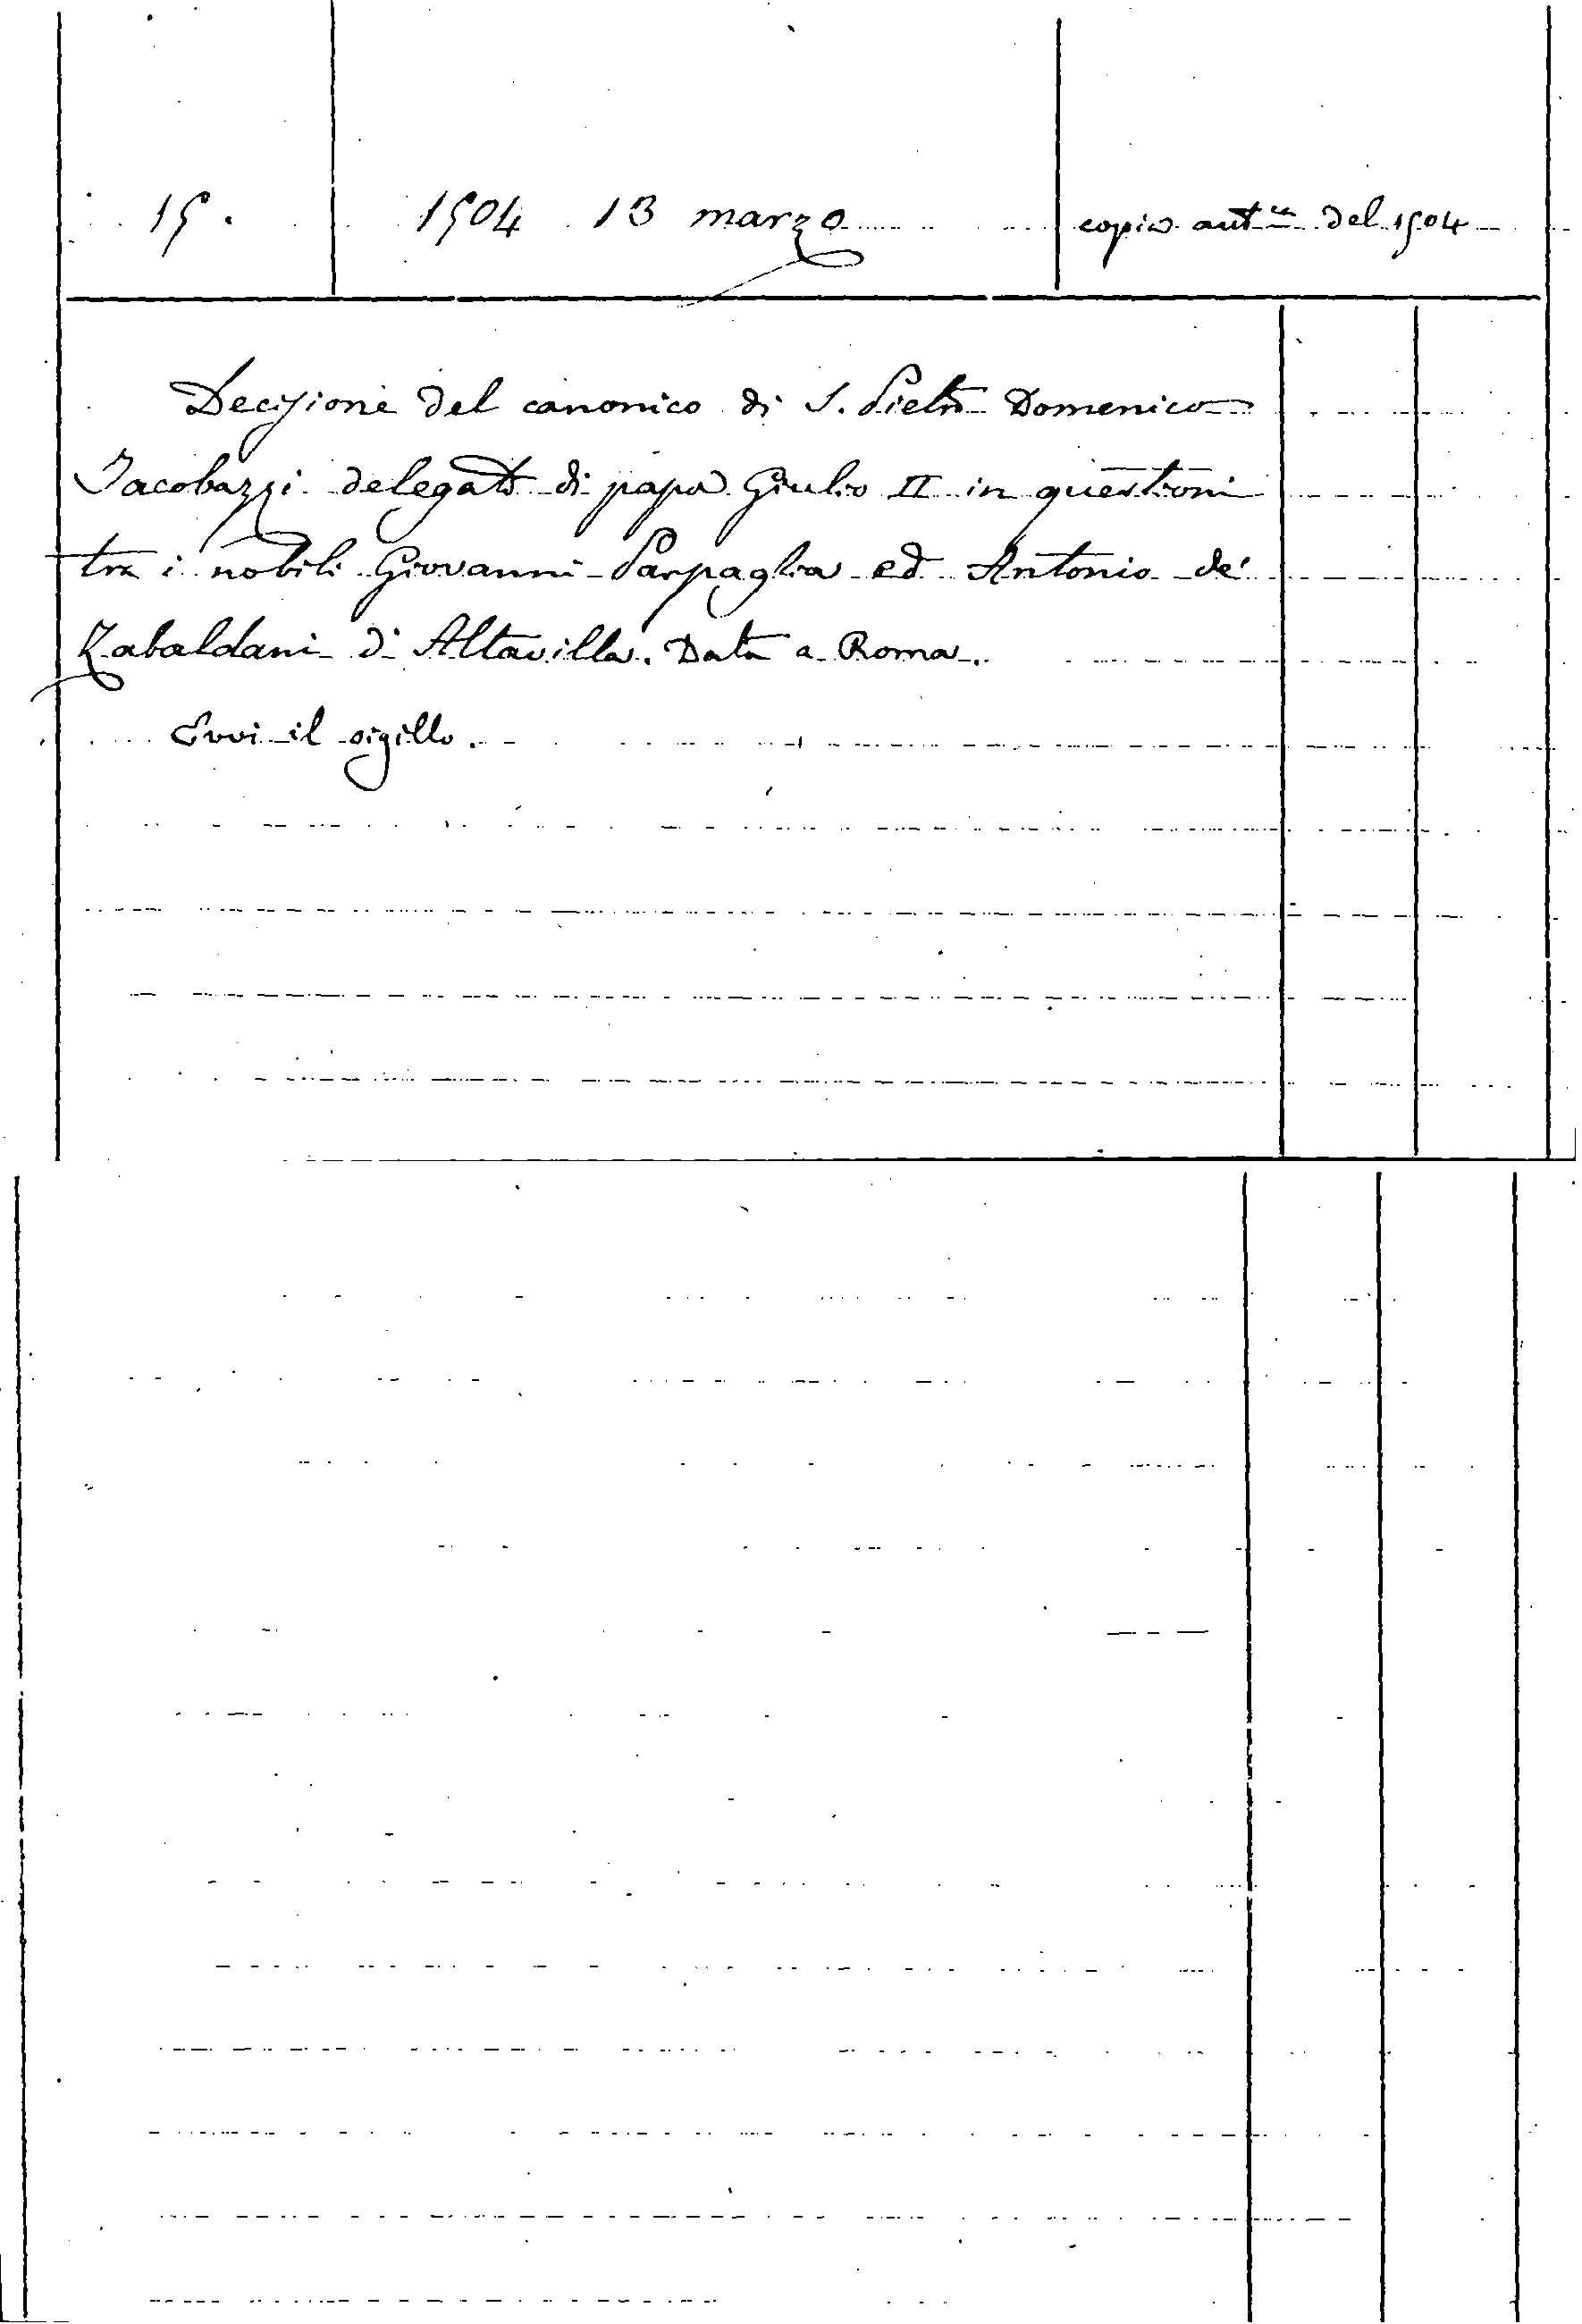 15. 1504 13 marzo copia aut.ca del 1504
Decisione del canonico di S. Pietro Domenico
Jacobazzi delegato di papa Giulio II in questioni
tra i nobili Giovanni Parpaglia ed Antonio de'
Zabaldani di Altavilla. Data a Roma.
Evvi il sigillo.